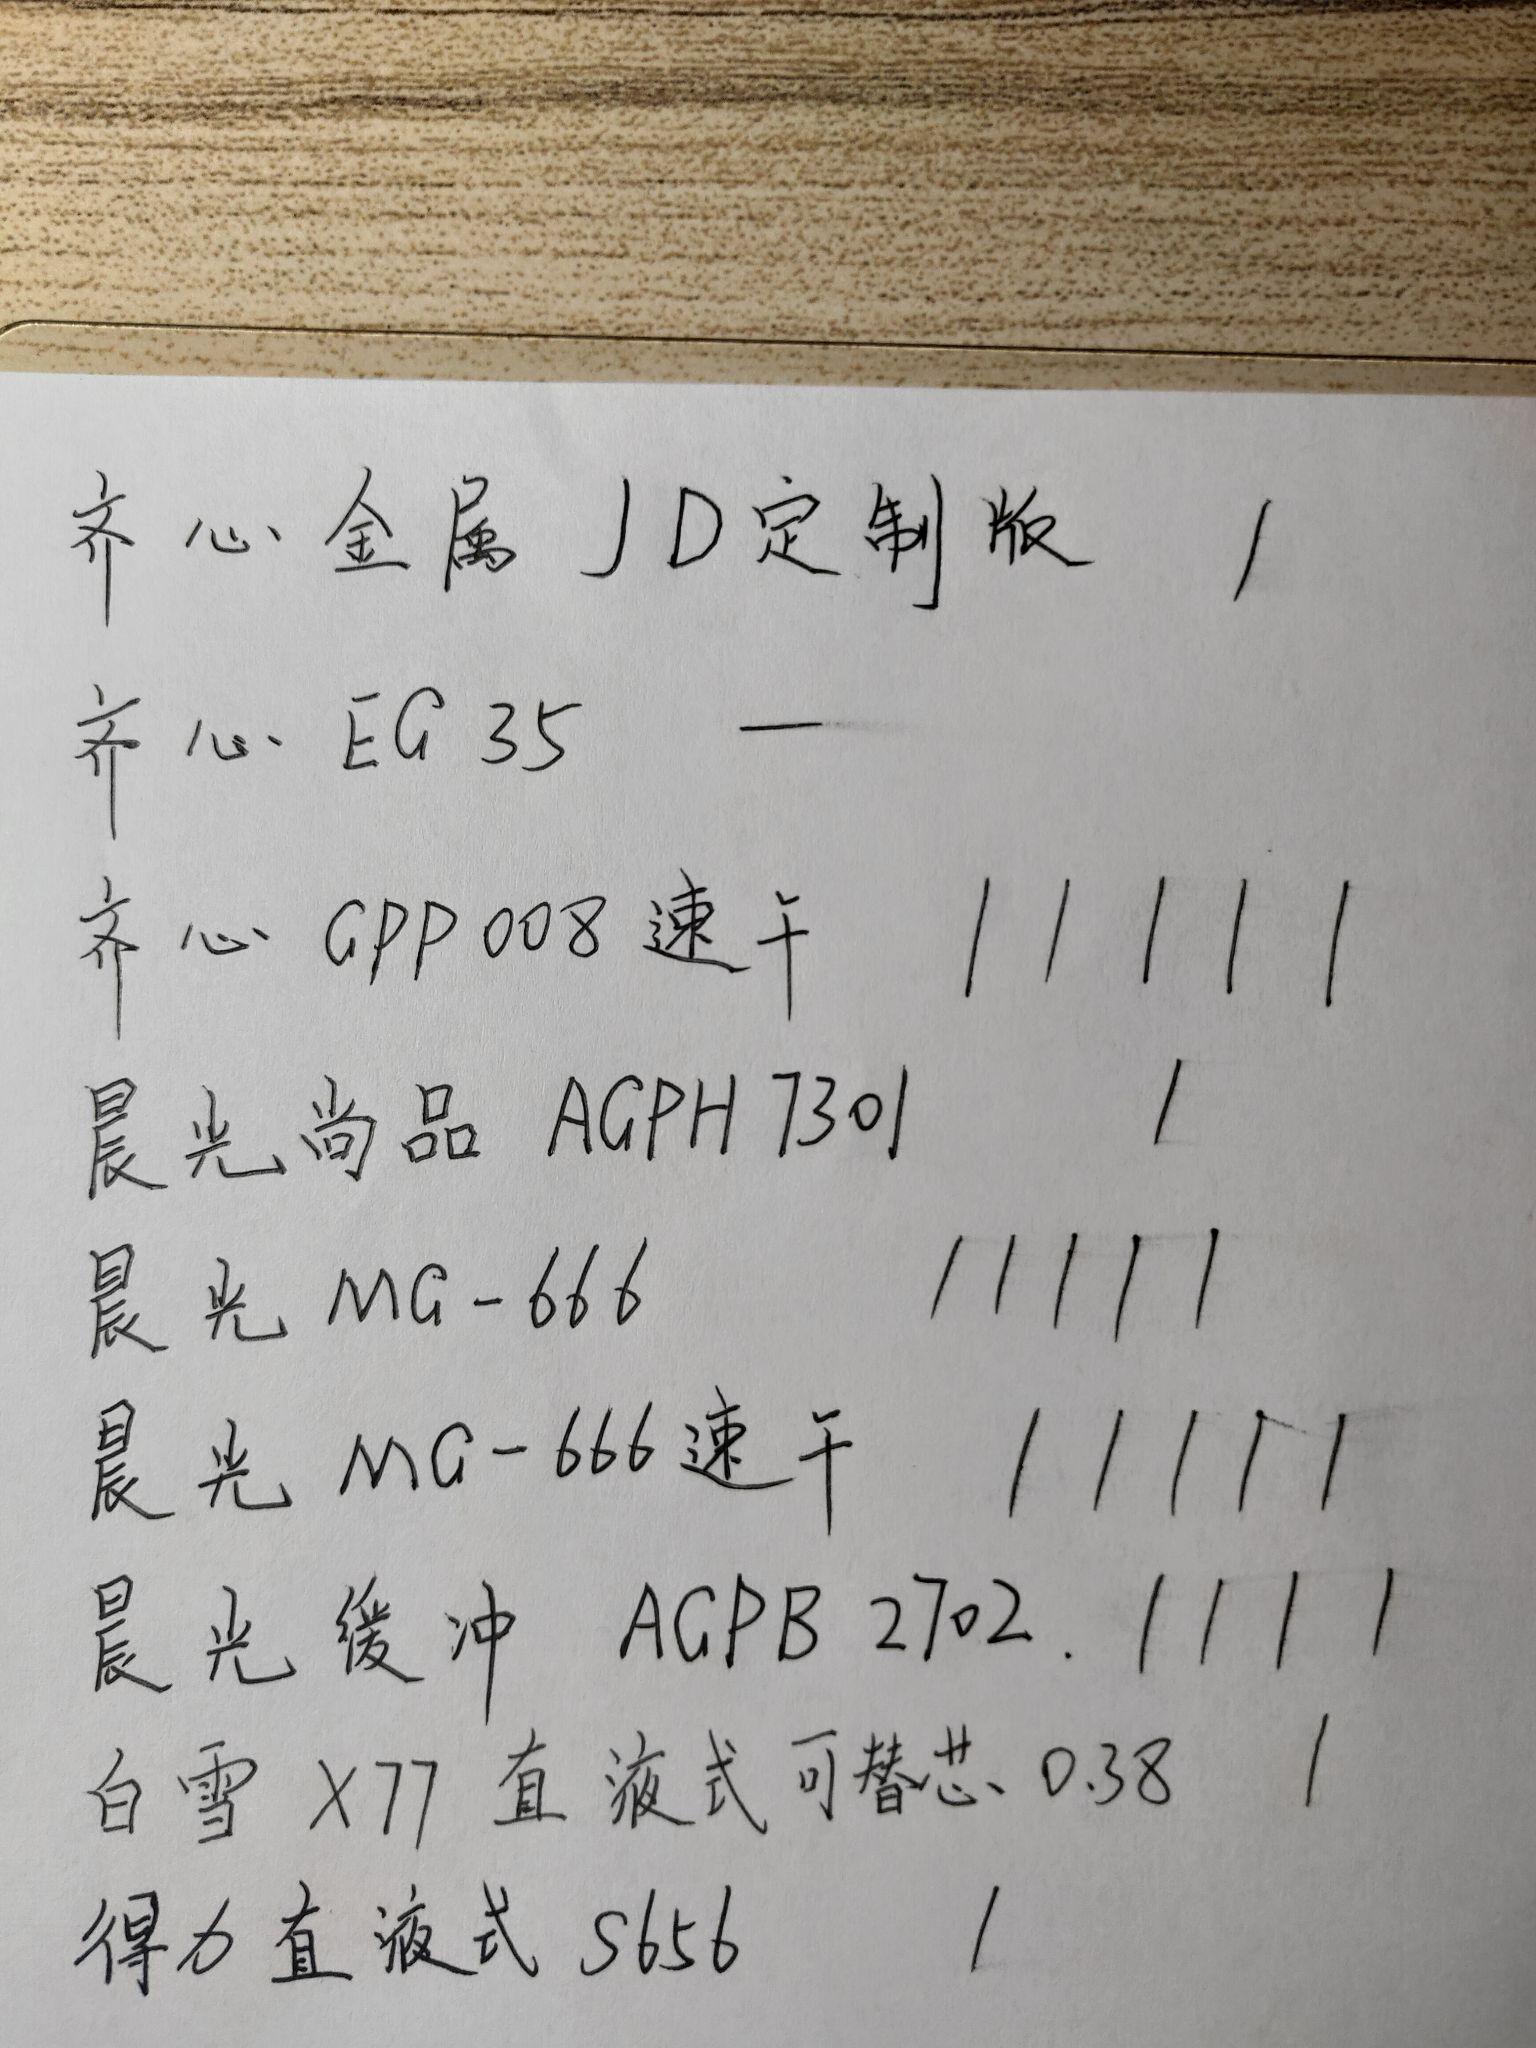 齐心金属JD定制版 /
齐心 EG 35 —
齐心 GPP 008 速干 / / / / /
晨光尚品 AGPH 7301 /
晨光 MG-666 / / / / /
晨光 MG-666 速干 / / / / /
晨光缓冲 AGPB 2702. / / / /
白雪 X77 直液式可替芯 0.38 /
得力直液式 S656 /